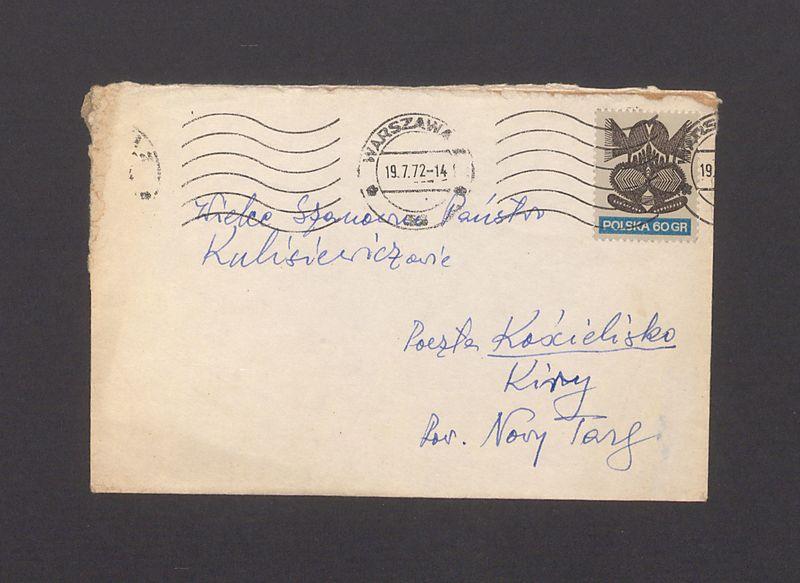 WARSZAWA 1
19.7.72-14
19
POLSKA 60 GR
Wielce Szanowni Państwo
Kulisiewiczowie
Poczta Kościelisko
Kiry
Pow. Nowy Targ